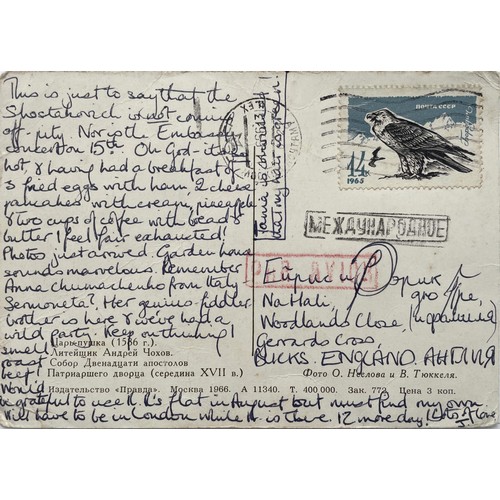 This is just to say that the
Shostakovich is not coming
off - pity. Nor is the Embassy
concert on 15th. Oh God - it is
hot, & having had a breakfast of
3 fried eggs with ham, 2 cheese
pancakes with cream, pineapple
& two cups of coffee with bread &
butter I feel fair exhausted!
Photos just arrived. Garden house
sounds marvelous. Remember
Anna Chumachenko from Italy
Sermoneta? Her genius fiddler
brother is here & we've had a
wild party. Keep on thinking!
I smell
roast
beef!
Would
be grateful to use R.R's flat in August but must find my own
Will have to be in London while it is there. 12 more days! Lots of love
J.
Царь-пушка (1586 г.)
Литейщик Андрей Чохов.
Собор Двенадцати апостолов
Патриаршего дворца (середина XVII в.)
Фото О. Неелова и В. Тюккеля.
Издательство «Правда». Москва 1966. А 11340. Т. 400 000. Зак. 772. Цена 3 коп.
ПОЧТА СССР
14
1965
МЕЖДУНАРОДНОЕ
PAR AVION
Натhali,
Woodlands Close,
Gerrards Cross,
BUCKS. ENGLAND. АНГЛИЯ